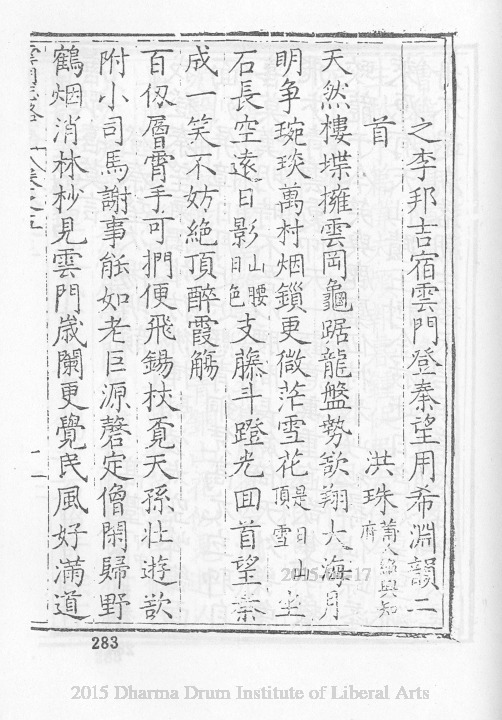 之李邦吉宿雲門登秦望用希淵韻二
首　　　　　　洪珠莆人紹興知府
天然樓堞擁雲岡龜踞龍盤勢欲翔大海月
明爭琬琰萬村烟鎖更微茫雪花是日頂雪山尘
石長空遠日影山腰日色支藤斗蹬光回首望秦
成一笑不妨絶頂醉霞觴
百仭層霄手可捫便飛錫杖覔天孫壯遊欲
附小司馬謝事能如老巨源磬定僧閑歸野
鶴烟消林杪見雲門歲闌更覺民風好滿道
雲門志略 卷之五
283
2015-04-17
2015 Dharma Drum Institute of Liberal Arts